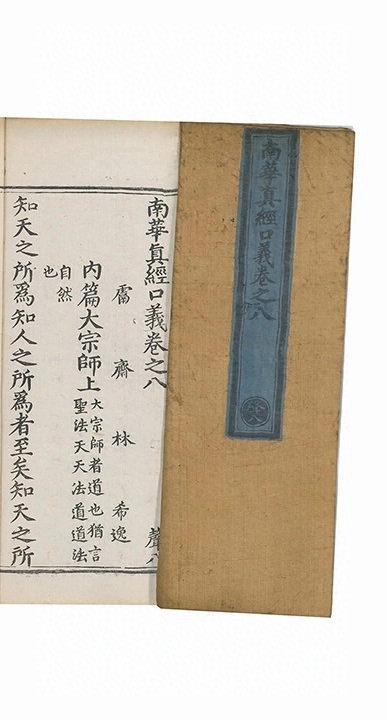 南華真經口義卷之八
南華眞經口義卷之八
鬳齋林希逸
内篇大宗師上
大宗師者道也猶言
聖法天天法道道法
自然
也
知天之所爲知人之所爲者至矣知天之所